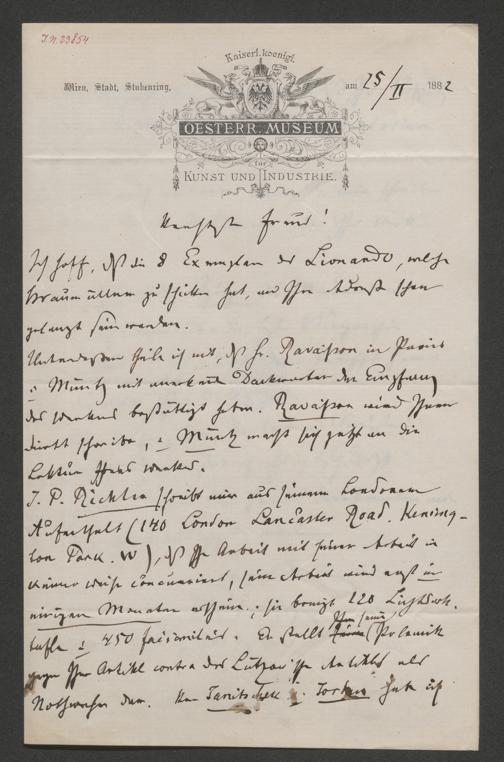 I.N. 23854
Kaiserl. koenigl.
Wien, Stadt, Stubenring,
am 25/II 1882
OESTERR. MUSEUM
für
KUNST UND INDUSTRIE.
Freund!
Ich hoffe, daß die 8 Exemplare des Lionardo, welche
Braumüller zu schicken hat, an Ihre Adresse schon
gelangt sein werden.
Unterdessen theile ich mit, daß H. Ravaisson in Paris
u. Müntz mit Dankworten den Empfang
des Werkes bestätigt haben. Ravaisson wird Ihnen
direkt schreiben, u. Müntz macht sich jetzt an die
Lektüre Ihres Werkes.
J. P. Richter schreibt mir aus seinem Londoner
Aufenthalt (140 London Lancaster Road. Kensing-
ton Park. W), daß Ihre Arbeit mit seiner Arbeit in
keiner Weise concurrirt, seine Arbeit wird erst in
einigen Monaten erscheinen; sie bringt 220 Lichtdruck-
tafeln u. 450 facsimiles. Er stellt Ihnen seine Polemik
gegen Ihre Artikel contra des Lützow'sche Artikels als
Nothwehr dar. Tanitschek u. habe ich